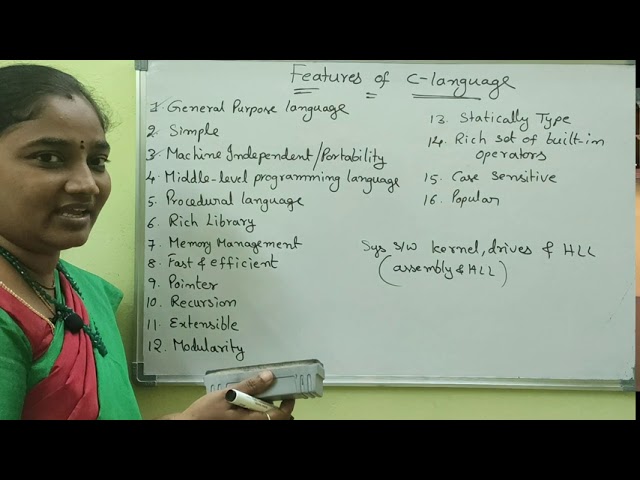 Features of C-language
1. General Purpose language
2. Simple
3. Machine Independent/Portability
4. Middle-level programming language
5. Procedural language
6. Rich Library
7. Memory Management
8. Fast & efficient
9. Pointer
10. Recursion
11. Extensible
12. Modularity
13. Statically Type
14. Rich set of built-in
operators
15. Case sensitive
16. Popular
Sys s/w kernel, drives & HLL
(assembly & HLL)